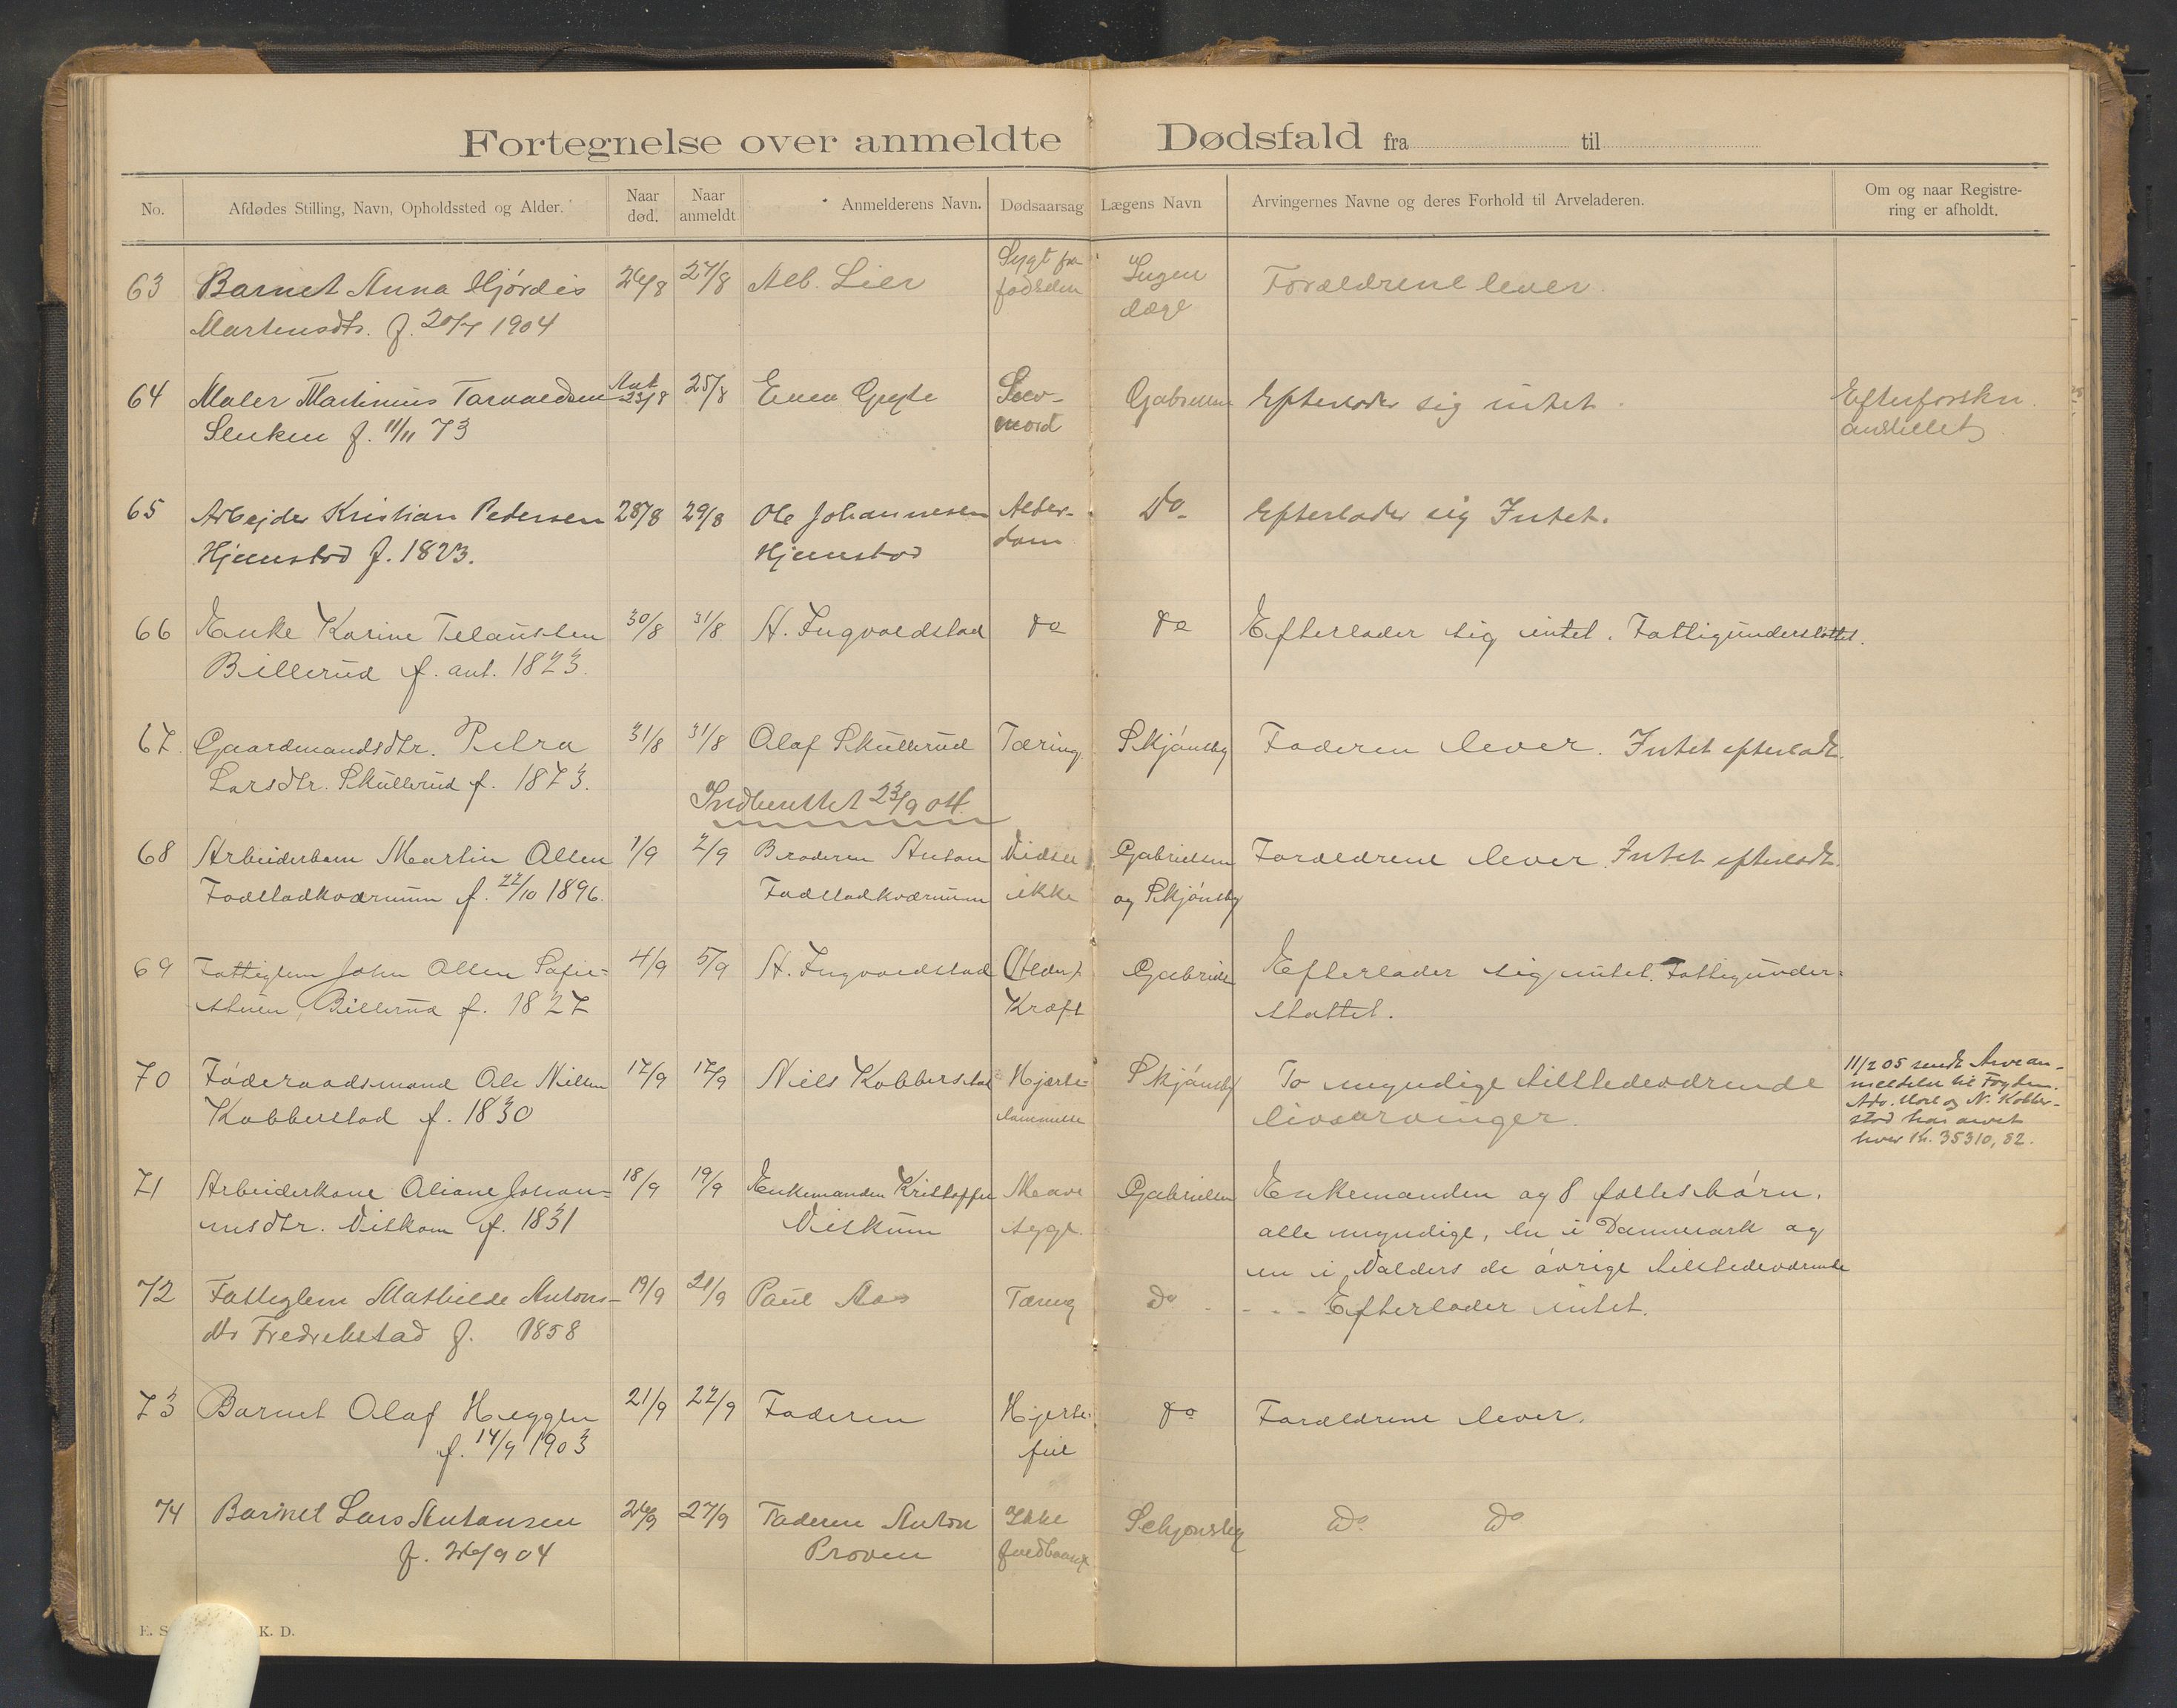 Fortegnelse over anmeldte Dødsfald fra til
No. Afdødes Stilling, Navn, Opholdssted og Alder. Naar død. Naar anmeldt. Anmelderens Navn. Dødsaarsag Lægens Navn Arvingernes Navne og deres Forhold til Arveladeren. Om og naar Registrering er afholdt.
63 Barnet Anna Hjørdis 26/8 27/8 Alb. Lier Sygt fra Ingen Forældrene lever.
Martensdtr. f. 20/7 1904 fødselen læge
64 Maler Martinius Tarvaldsen Ant. 23/8 25/8 Selv- Gabrielsen Efterlader sig intet. Efterforskn.
f. 11/11 73 mord anstillet
65 Arbejder Kristian Pedersen 28/8 29/8 Ole Johannesen Alder- Do Efterlader sig Intet.
Hjemstad f. 1823. Hjemstad dom
66 Enke Karine 30/8 31/8 H. Ingvaldstad do do Efterlader sig intet. Fattigunderstøttet.
Billerud f. ant. 1823.
67. Gaardmandsdtr. Petra 31/8 31/8 Olaf Skullerud Tæring. Skjønsby Faderen lever. Intet efterladt.
Larsdtr. Skullerud f. 1873.
Indberettet 23/9 04.
68 Arbeiderbarn Martin Olsen 1/9 2/9 Broderen Anton Vidstes Gabrielsen Forældrene lever. Intet efterladt.
Fadstadkværnum f. 22/10 1896. Fadstadkværnum ikke og Skjønsby
69 Fattiglem John Olsen Sofie- 4/9 5/9 H. Ingvaldstad Gabriels Efterlader sig intet. Fattigunder-
stuen, Billerud f. 1827 Kræft støttet.
70 Føderaadsmand Ole Nilsen 17/9 17/9 Niels Kobberstad Hjærte- Skjønsby To myndige tilstedeværende
Kobberstad f. 1830 lammelse livsarvinger.
11/2 05 sendt Arvean-
meldelse til Fogden.
N. Kobber-
stad har arvet
hver Kr. 35310,82.
71 Arbeiderkone Oliane Johan- 18/9 19/9 Enkemanden Kristoffer Mave Gabrielsen Enkemanden og 8 fællesbørn,
nesdtr. Vilkom f. 1831 Vilkum syge. alle myndige, en i Danmark og
en i Valders de øvrige tilstedeværende
72 Fattiglem Mathilde Antons- 19/9 21/9 Paul Aas Tæring Do - - - Efterlader intet.
dtr Fredrekstad f. 1858
73 Barnet Olaf Heggen 21/9 22/9 Faderen Hjerte- do Forældrene lever.
f. 14/9 1903 feil
74 Barnet Lars Antonsen 26/9 27/9 Faderen Anton Ikke Schjønsby Do Do
f. 26/9 04 Proven fuldbaaret
E. S K. D.